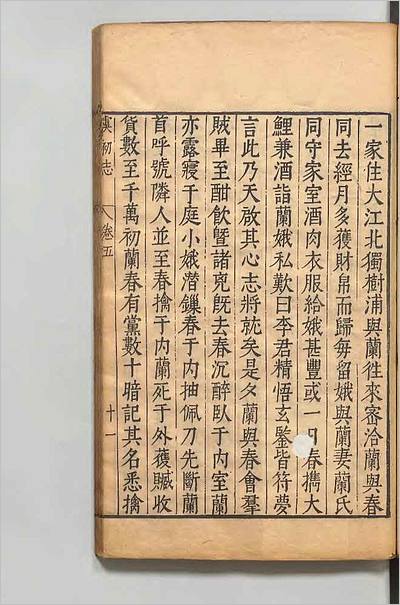 一家住大江北獨樹浦與蘭徃來宻洽蘭與春
同去經月多獲財帛而歸每留娥與蘭妻蘭氏
同守家室酒肉衣服給娥甚豐或一日春擕大
鯉兼酒詣蘭娥私歎曰李君精悟玄鑒皆符夢
言此乃天啟其心志將就矣是夕蘭與春會羣
賊畢至酣飲曁諸兇旣去春沉醉臥于內室蘭
亦露寢于庭小娥潛鏁春于内抽佩刀先斷蘭
首呼號隣人並至春擒于内蘭死于外獲贓收
貨數至千萬初蘭春有黨數十暗記其名悉擒
虞初志
卷五
十一